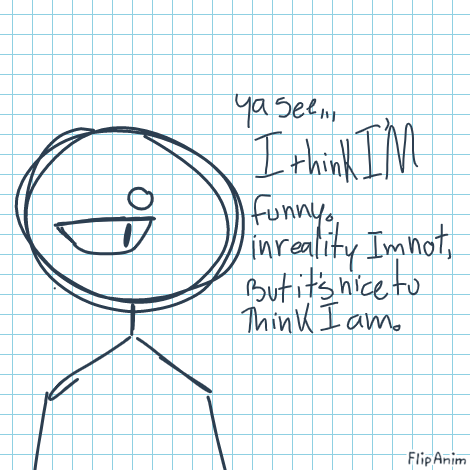 ya see,,,
I think I'M
funny.
in reality Im not,
But it's nice to
Think I am.
FlipAnim